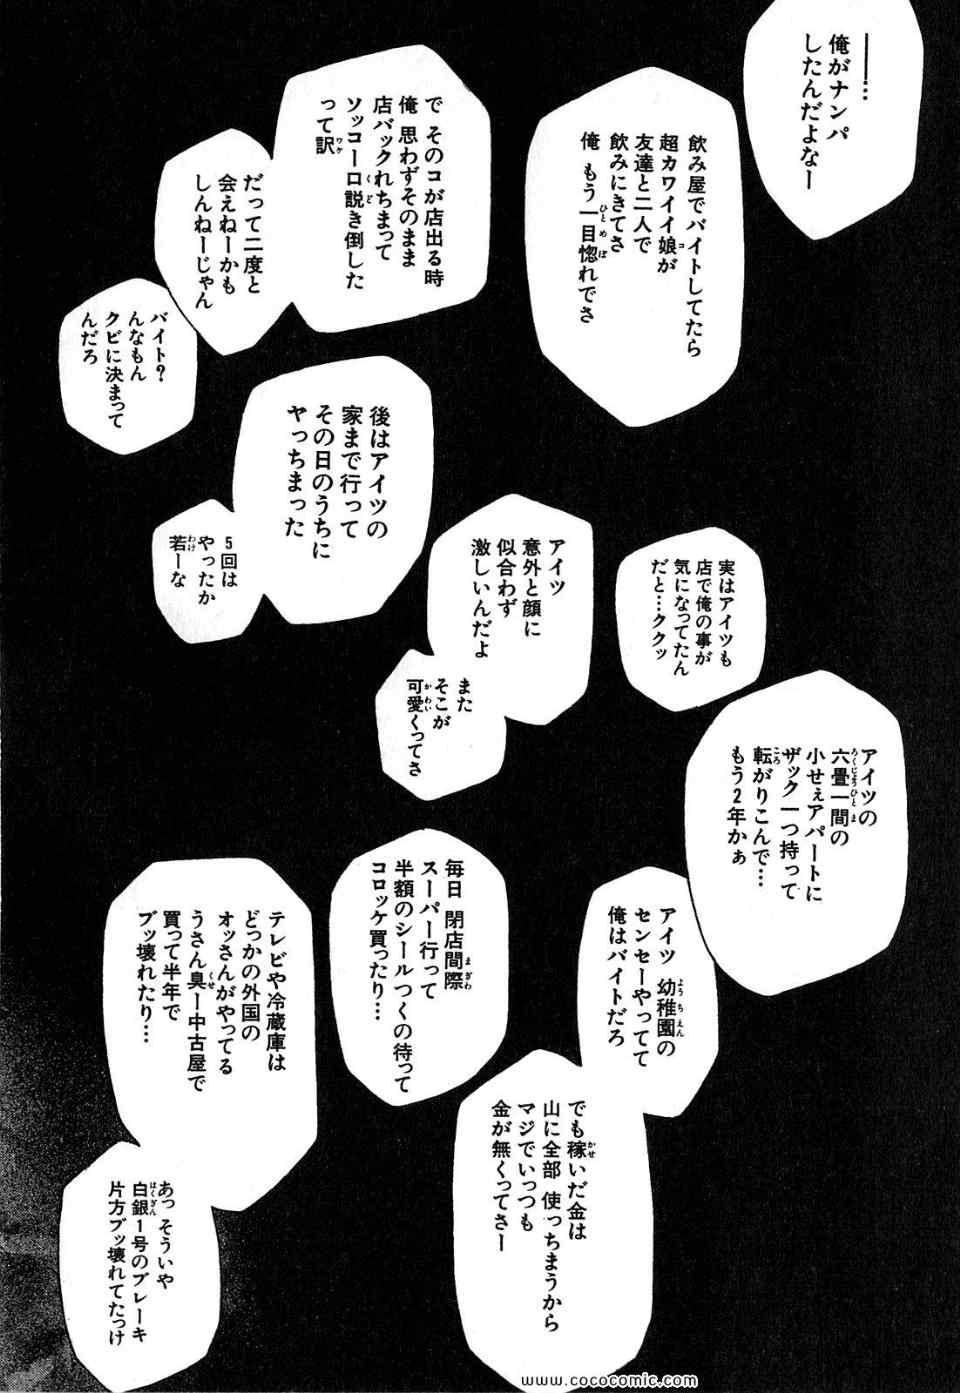 ――…
俺がナンパ
したんだよなー
飲み屋でバイトしてたら
超カワイイ娘が
友達と二人で
飲みにきてさ
俺 もう一目惚れでさ
で そのコが店出る時
俺 思わずそのまま
店バックれちまって
ソッコー口説き倒した
って訳
だって二度と
会えねーかも
しんねーじゃん
バイト?
んなもん
クビに決まって
んだろ
後はアイツの
家まで行って
その日のうちに
ヤっちまった
5回は
やったか
若ーな
実はアイツも
店で俺の事が
気になってたん
だと…ククッ
アイツ
意外と顔に
似合わず
激しいんだよ
また
そこが
可愛くってさ
アイツの
六畳一間の
小せぇアパートに
ザック一つ持って
転がりこんで…
もう2年かぁ
アイツ 幼稚園の
センセーやってて
俺はバイトだろ
でも稼いだ金は
山に全部 使っちまうから
マジでいっつも
金が無くってさー
毎日 閉店間際
スーパー行って
半額のシールつくの待って
コロッケ買ったり…
テレビや冷蔵庫は
どっかの外国の
オッさんがやってる
うさん臭ー中古屋で
買って半年で
ブッ壊れたり…
あっ そういや
白銀1号のブレーキ
片方ブッ壊れてたっけ
www.cococomic.com